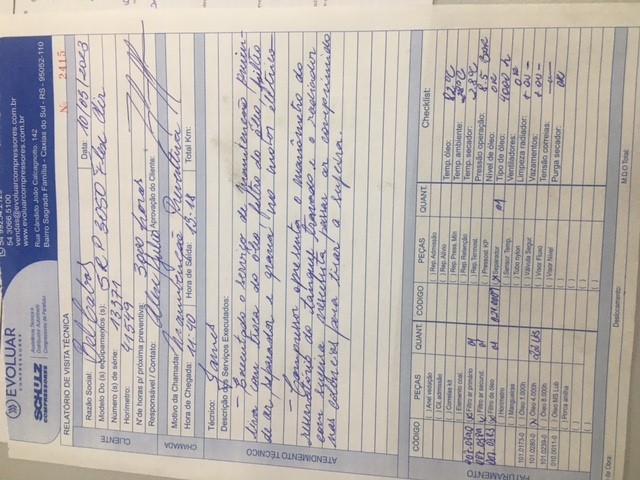 EVOLUAR
SCHULZ
COMPRESSORES
Assistência Técnica e
Distribuidor Autorizado
Compressores de Parafuso
54 3066.5100
vendas@evoluarcompressores.com.br
www.evoluarcompressores.com.br
Rua Cândido João Calcagnotto, 142
Bairro Sagrada Família - Caxias do Sul - RS - 95052-110
RELATÓRIO DE VISITA TÉCNICA
Nº 2415
CLIENTE
Razão Social:
Data: 10/05/2023
Modelo Do (s) equipamentos (s): SRP 3050 Flex Air
Número (s) de série: 13371
Horímetro: 41549
Nº de horas p/ próxima preventiva: 3000 horas
Responsável / Contato:
Aprovação do Cliente:
CHAMADA
Motivo da Chamada: Manutenção Preventiva
Hora de Chegada: 11:40
Hora de Saída: 13:18
Total Km:
ATENDIMENTO TÉCNICO
Técnico:
Descrição dos Serviços Executados:
- Executado o serviço de manutenção preven-
tiva com troca do óleo, filtro do óleo, filtro
de ar, separador e graxa no motor elétrico
- Compressor apresenta o manômetro do
reservatório tanque travado e o radiador
com sujeira, precisa passar ar comprimido
nas colmeias para tirar a sujeira.
FATURAMENTO
CÓDIGO
PEÇAS
QUANT.
CÓDIGO
PEÇAS
QUANT.
Checklist:
( ) Anel vedação
( ) Rep. Admissão
Temp. óleo: 82ºC
( ) Cil. admissão
( ) Rep. Alívio
Temp. ambiente:
( ) Correias kit
( ) Rep. Press. Mín
Temp. secador:
( ) Elemento coal.
( ) Rep. Retenção
Pressão operação: 8.5 BAR
Filtro ar primário 01
( ) Rep. Termost.
Nível de óleo: OK
Filtro ar secund. 01
( ) Pressost. KP
Tipo de óleo: 4000 h
Filtro de óleo 01
Separador 01
Ventiladores: OK
( ) Horímetro
( ) Sensor Temp.
Limpeza radiador:
( ) Mangueiras
( ) Tubo nylon
Vazamentos:
101.0173-0
Óleo 1.000h
( ) Válvula Segur.
Tensão correias:
Óleo 4.000h
( ) Visor Fluxo
Purga secador: OK
Óleo 8.000h
( ) Visor Nível
010.0011-0
Óleo MS Lub
Porca anilha
Deslocamento:
M.D.O Total: